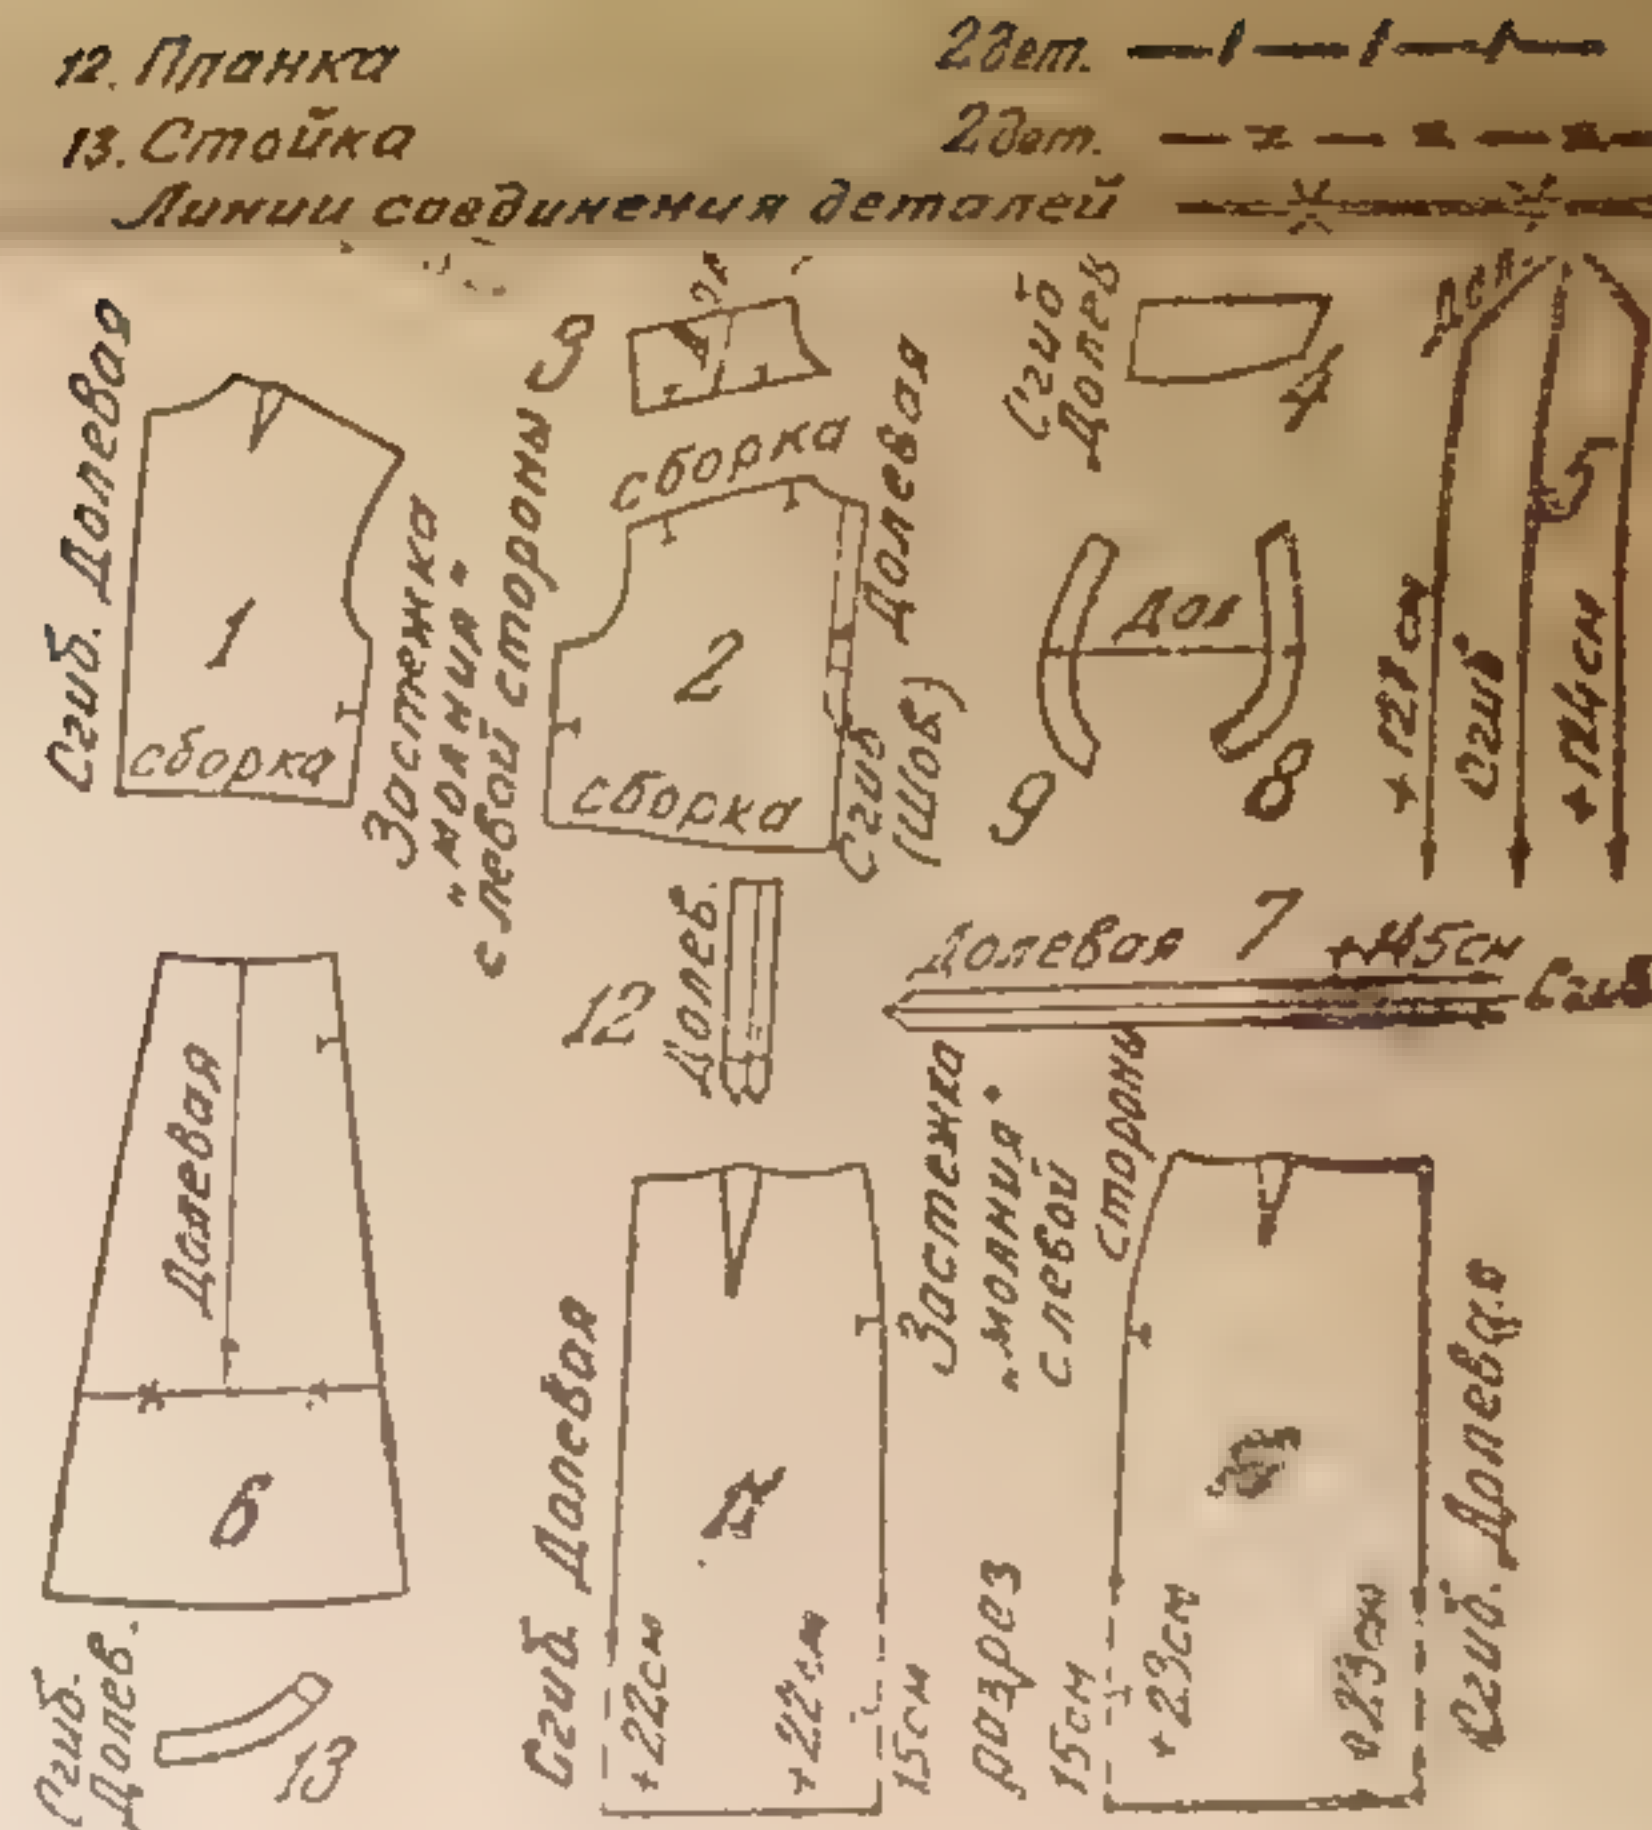 12. Планка 2 дет.
13. Стойка 2 дет.
Линии соединения деталей
Сгиб. Долевая
1
сборка
Застежка
"молния"
с левой стороны
3
сборка
2
сборка
Долевая
Сгиб
(Шов)
Сгиб
Долев
4
5
+121 см
Сгиб
+124 см
Дол
9
8
12
Долев.
Долевая 7 +45 см Сгиб
Долевая
6
Сгиб Долевая
+22 см
+22 см
15 см
Застежка
"молния"
с левой
стороны
разрез
15 см
+23 см
23 см
Сгиб. Долевая
Сгиб.
Долев.
13